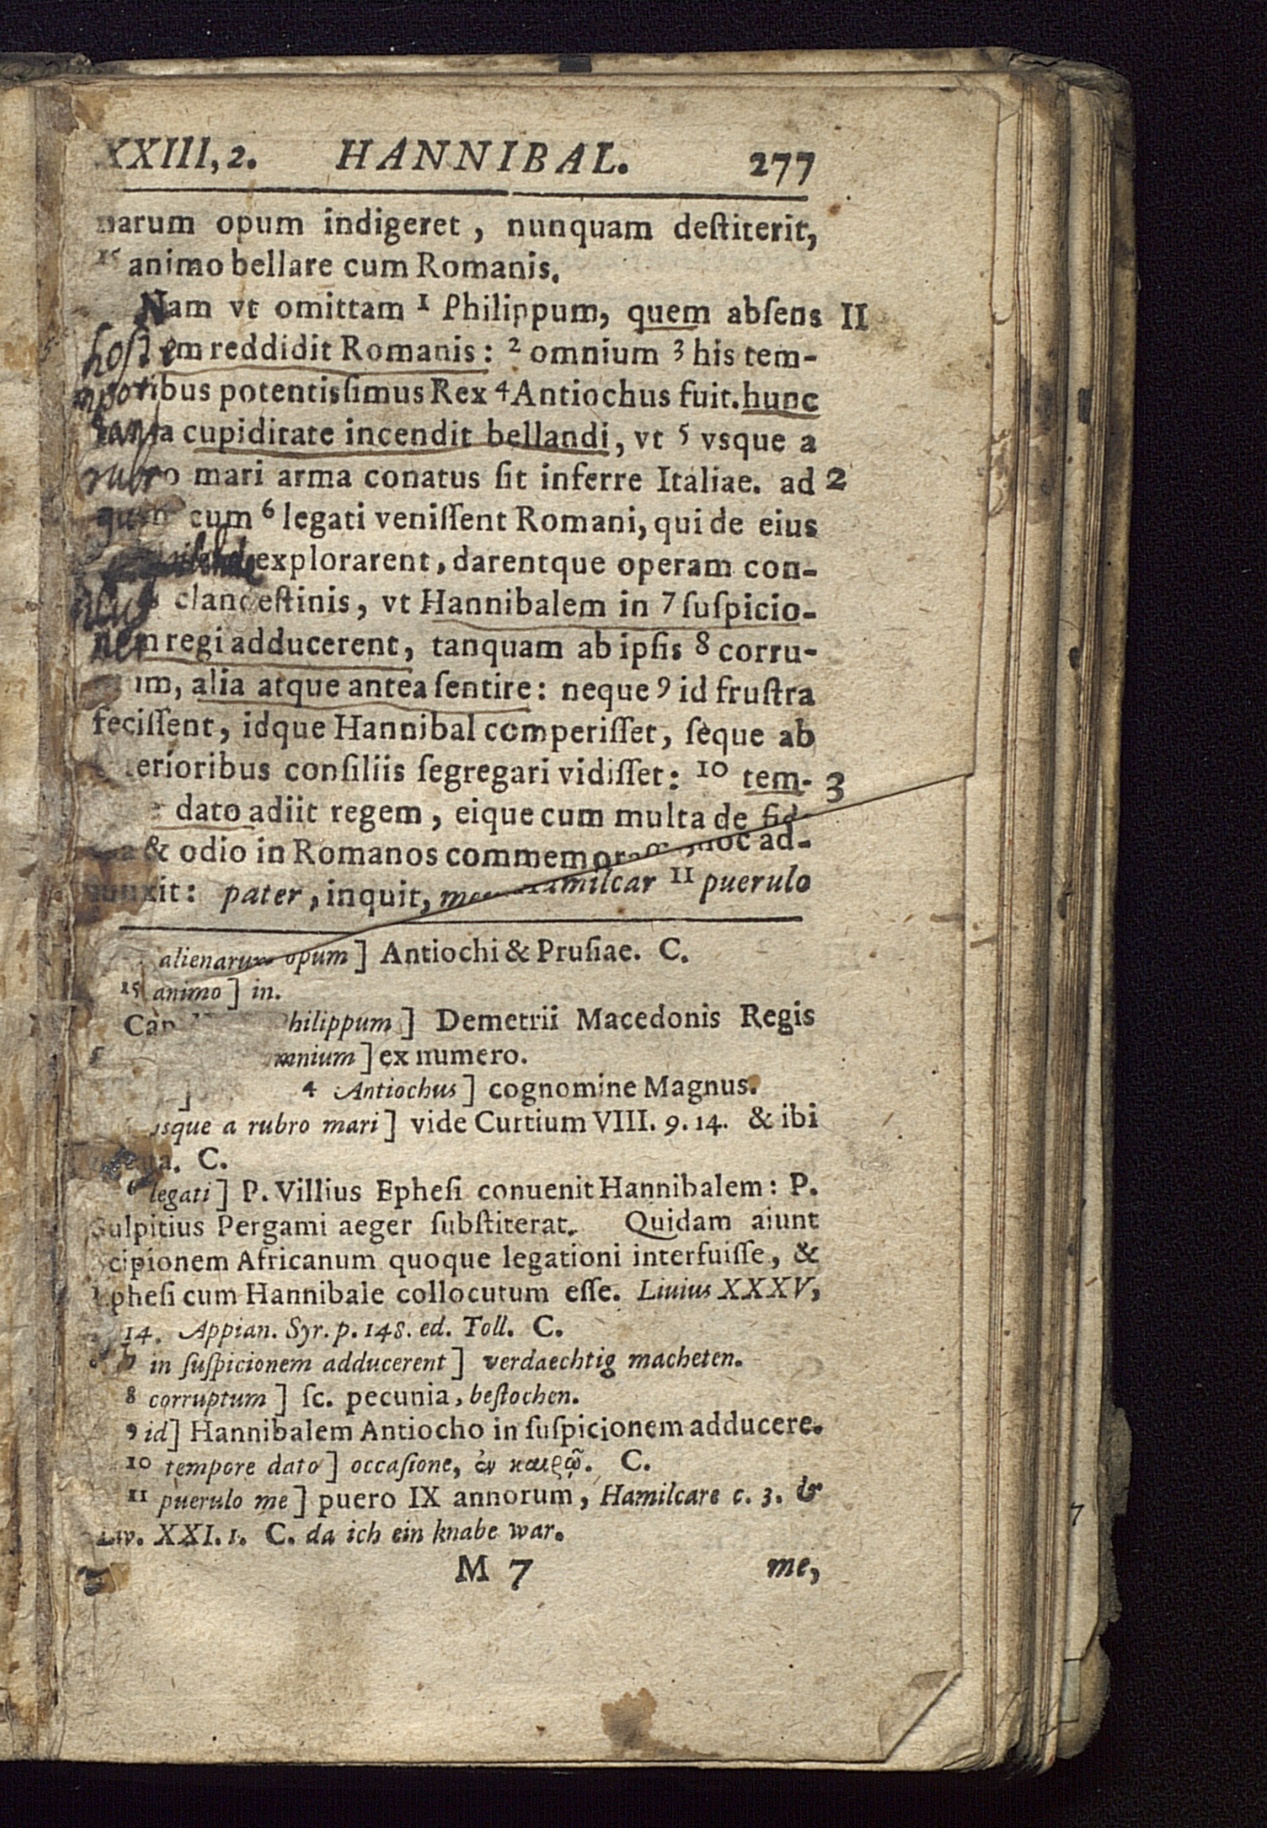 XXIII, 2. HANNIBAL. 277
narum opum indigeret, nunquam deſtiterit,
15 animo bellare cum Romanis.
Nam vt omittam 1 Philippum, quem abſens II
hoſtem reddidit Romanis: 2 omnium 3 his tem-
poribus potentisſimus Rex 4 Antiochus fuit. hunc
tanta cupiditate incendit bellandi, vt 5 vsque a
rubro mari arma conatus ſit inferre Italiae. ad 2
quem cum 6 legati veniſſent Romani, qui de eius
explorarent, darentque operam con-
clandeſtinis, vt Hannibalem in 7 ſuſpicio-
nem regi adducerent, tanquam ab ipſis 8 corru-
um, alia atque antea ſentire: neque 9 id fruſtra
feciſſent, idque Hannibal comperiſſet, ſèque ab
terioribus conſiliis ſegregari vidiſſet: 10 tem- 3
dato adiit regem, eique cum multa de fide
& odio in Romanos commemoraſſ hoc ad-
iunxit: pater, inquit, Hamilcar 11 puerulo
alienarum opum] Antiochi & Pruſiae. C.
15 animo] in.
Cap hilippum] Demetrii Macedonis Regis
mnium] ex numero.
4 Antiochus] cognomine Magnus.
vsque a rubro mari] vide Curtium VIII. 9. 14. & ibi
C.
6 legati] P. Villius Epheſi conuenit Hannibalem: P.
Sulpitius Pergami aeger ſubſtiterat. Quidam aiunt
Scipionem Africanum quoque legationi interfuiſſe, &
Epheſi cum Hannibale collocutum eſſe. Liuius XXXV,
14. Appian. Syr. p. 148. ed. Toll. C.
7 in ſuſpicionem adducerent] verdaechtig macheten.
8 corruptum] ſc. pecunia, beſtochen.
9 id] Hannibalem Antiocho in ſuſpicionem adducere.
10 tempore dato] occaſione, ἐν καιρῷ. C.
11 puerulo me] puero IX annorum, Hamilcare c. 3. &
Liv. XXI. 1. C. da ich ein knabe war.
M 7 me,